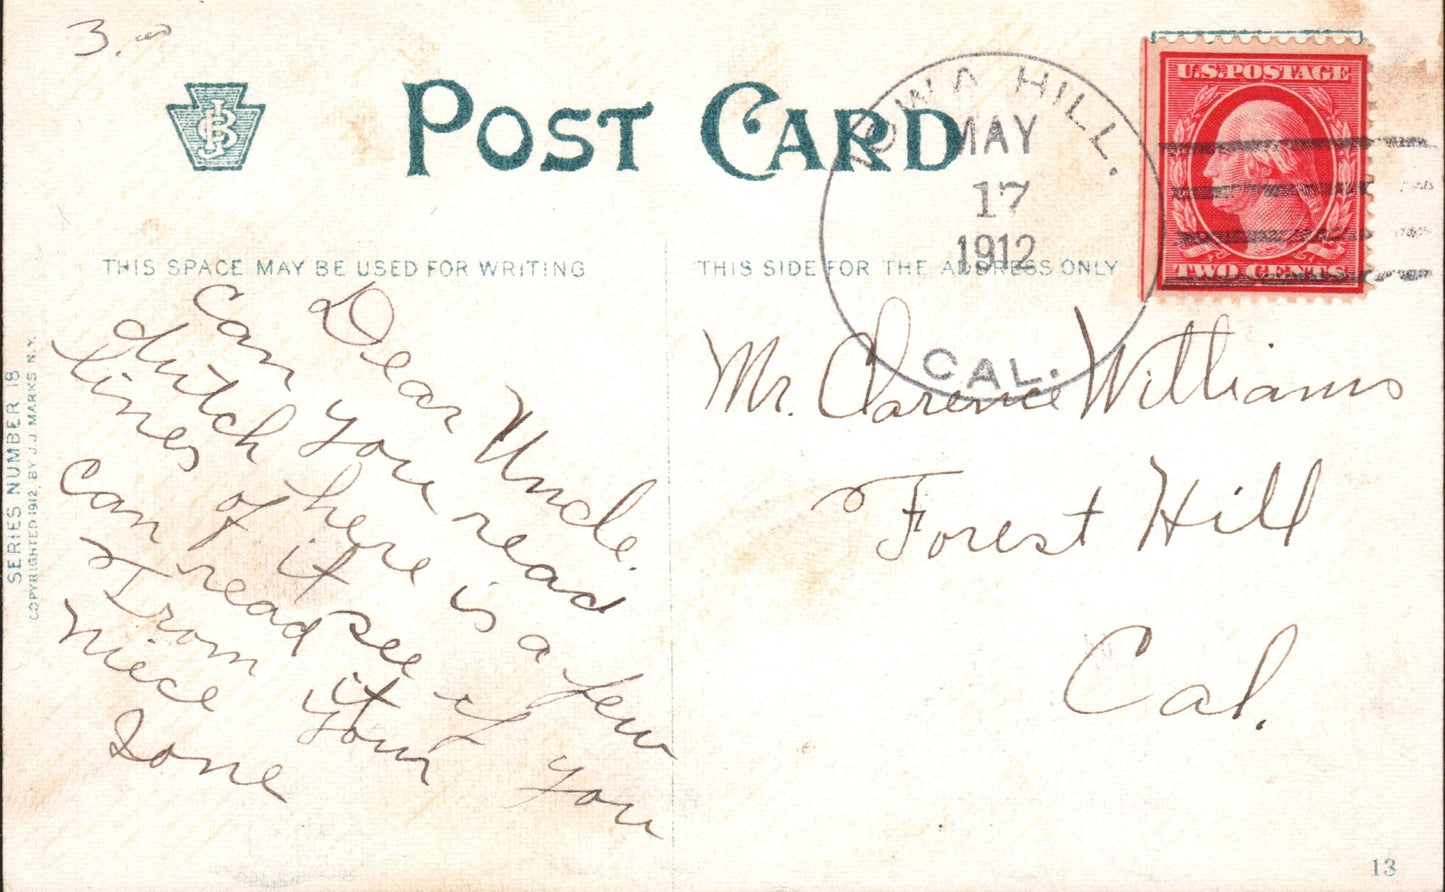 3.00
JSB
POST CARD
IOWA HILL.
MAY
17
1912
CAL.
U.S.POSTAGE
TWO CENTS
THIS SPACE MAY BE USED FOR WRITING
THIS SIDE FOR THE ADDRESS ONLY
SERIES NUMBER 18
COPYRIGHTED 1912, BY J.J. MARKS N.Y.
Dear Uncle
Can you read
dutch here is a few
lines of it see if you
can read it your
From your
niece
Ione
Mr. Clarence Williams
Forest Hill
Cal.
13